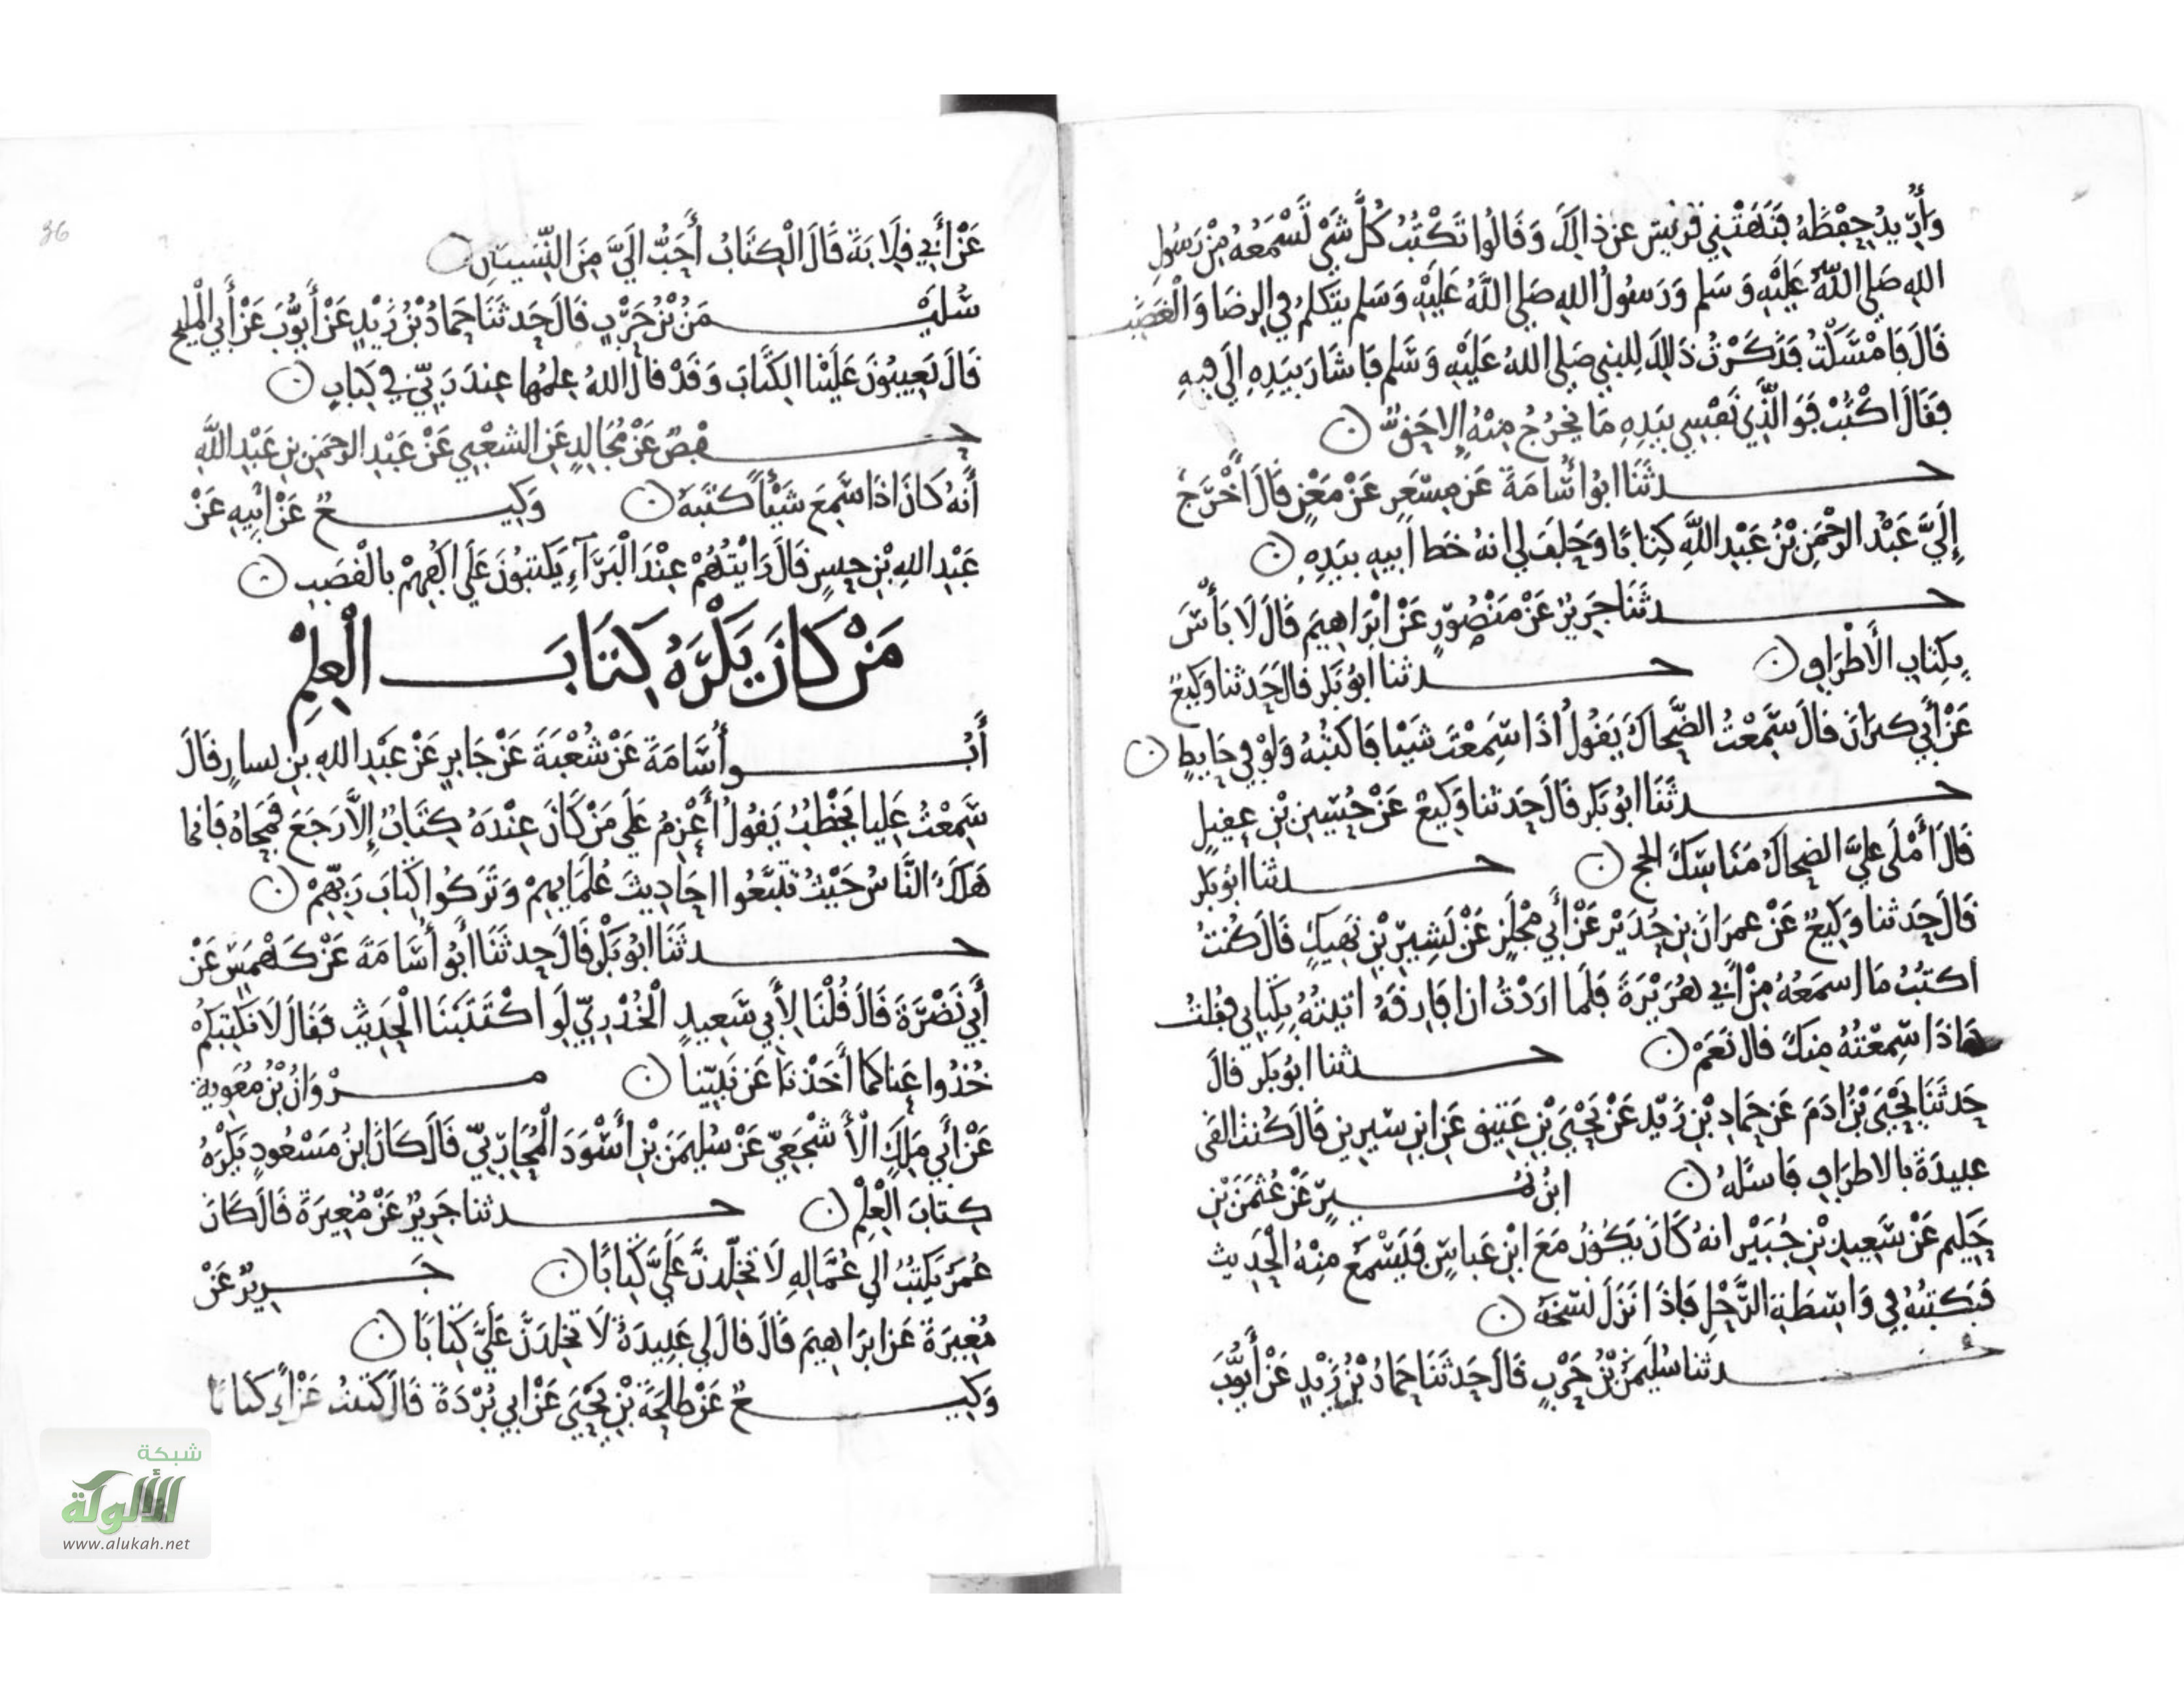 وَأُرِيدُ حِفْظَهُ فَنَهَتْنِي قُرَيْش عَنْ ذالِكَ وَقَالُوا تَكْتُبُ كُلَّ شَيْ تَسْمَعُهُ مِنْ رَسُولِ
اللهِ صَلى اللَّهُ عَلَيْهِ وَسَلم وَرَسُولُ اللهِ صَلى اللَّهُ عَلَيْهِ وَسَلم يتَكَلمُ فِي الرِضَا وَالْغَضَبِ
قَالَ فَامْسَكْتُ فَذَكَرْتُ ذَلِكَ لِلنبي صَلى اللهُ عَلَيْهِ وَسَلم فَاشَارَ بيَدِهِ الَى فِيهِ
فَقَالَ اكْتُبْ فَوَالَّذِي نَفْسِي بيَدِهِ مَا يَخرُجُ مِنْهُ إِلا حَقٌّ
حدثَنَا ابُوا أُسَامَةَ عَن مِسْعَرٍ عَنْ مَعْنٍ قَالَ أَخْرَجَ
إِلَيَّ عَبْدُ الرَحْمَنِ بْنُ عَبْدِ اللَّهِ كِتابًا وَحَلَفَ لي انهُ خَط أبيهِ بيَدِهِ
حدثنَا جَرِيرٌ عَنْ مَنْصُورٍ عَنْ ابْرَاهِيمَ قَالَ لَا بَأْسَ
بِكِتابِ الأَطْرَافِ حدثنا ابُوْ بَكرٍ قالَ حَدثنا وَكِيعٌ
عَنْ أَبي كبرَانَ قَالَ سَمِعْتُ الضَّحاكَ يَقُولُ اذَا سَمِعْتَ شَيْئا فَاكتُبْهُ وَلوْ فِي حَايِطٍ
حدثَنَا ابُوْ بَكرٍ قَالَ حَدثنا وَكِيعٌ عَنْ حُسَيْنِ بْنِ عقيلٍ
قَالَ أَمْلَى عليَّ الضحاكُ مَنَاسِكَ الحج حدثنا ابُوْ بَكرٍ
قَالَ حَدثنا وَكِيعٌ عَنْ عمرَانَ بنِ حُدَيْرٍ عَنْ أَبي مِجْلَزٍ عَنْ بَشِيرِ بْنِ نَهِيكٍ قَالَ كُنتُ
اكتبُ مَا اسمَعُهُ مِنْ أَبي هُرَيْرَةَ فَلَما ارَدْتُ ان افَارقَهُ اتيتهُ بكِتابي فقُلتُ
هَاذَا سَمِعْتُهُ مِنكَ قالَ نَعَمْ حدثنا ابُوْ بَكرٍ قالَ
حَدثنَا يَحْيَى بْنُ ادَمَ عَن حَمادِ بْنِ زَيْدٍ عَنْ يَحْيَى بْنِ عَتِيقٍ عَنِ ابنِ سيرِينَ قَالَ كُنت القَى
عبيدَةَ بالاطرَافِ فَاسئَلُهُ ابْنُ نُميرٍ عَنْ عُثمَنَ بْنِ
حَكِيمٍ عَنْ سَعِيدِ بْنِ جُبَيْرٍ انهُ كَانَ يَكُوْنُ مَعَ ابْنِ عَباسٍ فَيَسْمَعُ مِنْهُ الْحَدِيث
فَيكتبُهُ فِي وَاسِطَةِ الرَّحْلِ فَاذَا نَزَلَ نسَخَهُ
حدثنا سُلَيمَنُ بْنُ حَرْبٍ قَالَ حَدثَنَا حَمادُ بْنُ زَيْدٍ عَنْ أَيُّوبَ
36
عَنْ أَبي قِلَابَةَ قَالَ الْكِتَابُ أَحَبُّ الَيَّ مِنَ النِّسْيَانِ
سُلَيْمَنُ بْنُ حَرْبٍ قَالَ حَدثَنَا حَمادُ بْنُ زَيْدٍ عَنْ أَيُّوبَ عَنْ أَبي الْمَلِيحِ
قَالَ يَعِيبُونَ عَلَيْنا الكِتَابَ وَقَدْ قالَ اللهُ عِلمُها عِندَ رَبيّ فِي كِتَابٍ
حفصٌ عَنْ مُجَالِدٍ عَنِ الشعْبِي عَنْ عَبْدِ الرحمَنِ بنِ عَبْدِ اللَّهِ
أَنهُ كَانَ اذَا سَمِعَ شَيْئًا كتَبَهُ وَكِيعٌ عَنْ أَبِيهِ عَنْ
عَبْدِ اللهِ بْنِ حنشٍ قَالَ رَايْتُهُمْ عِنْدَ الْبَرَآءِ يَكتبُونَ عَلَى اكُفِهِمْ بالْقصَبِ
مَنْ كَانَ يَكْرَهُ كِتَابَ الْعِلْمِ
أَبُوأُسَامَةَ عَنْ شُعْبَةَ عَنْ جَابِرٍ عَنْ عَبْدِ اللهِ بنِ يسارٍ قَالَ
سَمِعْتُ عَلِيا يَخْطُبُ يَقُولُ أَعْزِمُ عَلَى مَنْ كَانَ عِنْدَهُ كِتَابٌ إِلَّا رَجَعَ فَمَحَاهُ فَانما
هَلَكَ النَّاسُ حَيْثُ تتَبَّعُوا احَادِيثَ عُلَمَايِهِمْ وَتَرَكُوا كِتَابَ رَبّهِمْ
حدثَنَا ابُوْ بَكْرٍ قَالَ حدثَنَا ابُو أُسَامَةَ عَنْ كَهْمَسٍ عَنْ
أَبي نَضْرَةَ قَالَ قُلْنَا لِأَبي سَعِيدٍ الْخُدْرِيّ لَوِ اكْتَتَبْنَا الْحَدِيثَ فَقَالَ لَا نُكْتِبُكُمْ
خُذُوا عَنا كمَا أَخَذْنَا عَن نَبِيّنا مرْوَانُ بْنُ مُعَوِيةَ
عَنْ أَبي مَلِكٍ الْأَشْجَعِيّ عَنْ سُليمَنَ بْنِ أَسْوَدَ الْمُحَارِبيّ قَالَ كَانَ ابنُ مَسْعُودٍ يَكْرَهُ
كِتابَ الْعِلْمِ حدثنا جَرِيرٌ عَنْ مُغِيرَةَ قَالَ كَانَ
عُمَرُ يَكتبُ الى عُمَّالِهِ لَا تخَلِّدُنَّ عَلَيَّ كِتَابًا جَرِيرٌ عَنْ
مُغِيرَةَ عَن ابرَاهِيمَ قَالَ قالَ لي عَبِيدَةُ لَا تخلِدَنَّ عَلَيَّ كِتابًا
وَكِيعٌ عَنْ طلحَةَ بْنِ يَحْيَى عَنْ ابي بُرْدَةَ قَالَ كَتَبْتُ عَنْ أَبي كتابًا
شبكة
الألوكة
www.alukah.net